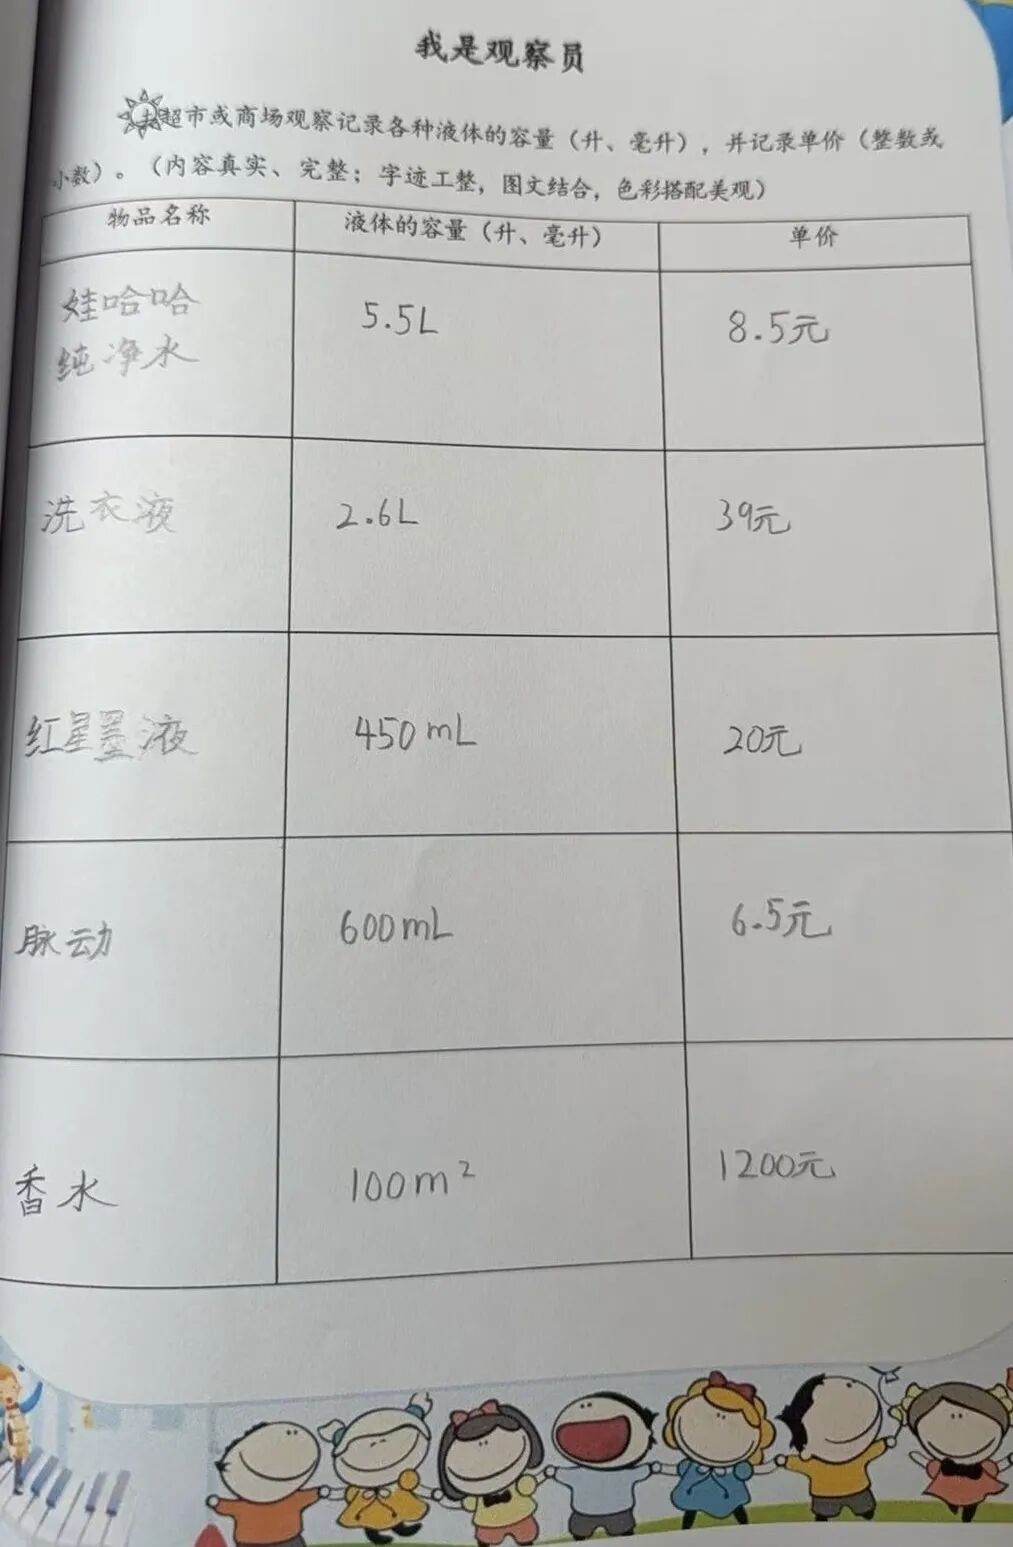 我是观察员
去超市或商场观察记录各种液体的容量（升、毫升），并记录单价（整数或
小数）。（内容真实、完整；字迹工整，图文结合，色彩搭配美观）
物品名称 液体的容量（升、毫升） 单价
娃哈哈
纯净水 5.5L 8.5元
洗衣液 2.6L 39元
红星墨液 450mL 20元
脉动 600mL 6.5元
香水 100m² 1200元